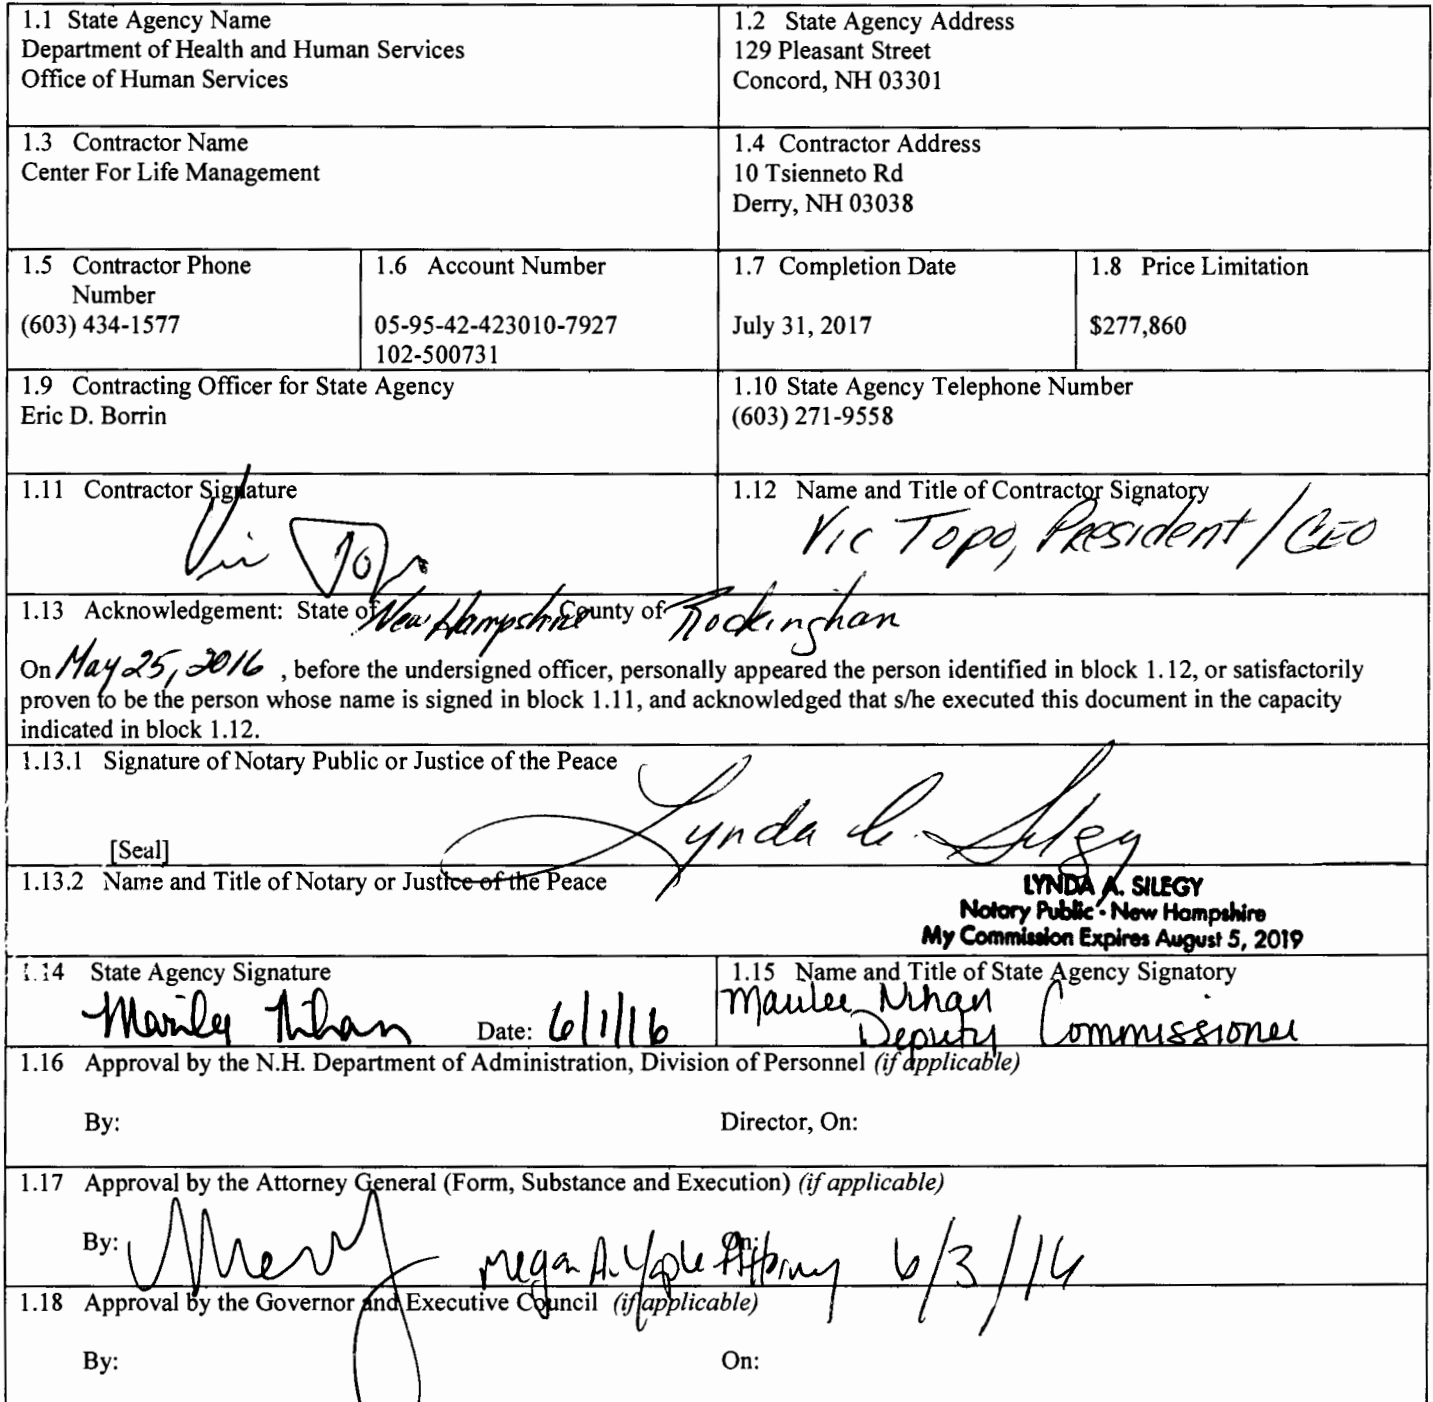 1.1 State Agency Name
Department of Health and Human Services
Office of Human Services
1.2 State Agency Address
129 Pleasant Street
Concord, NH 03301
1.3 Contractor Name
Center For Life Management
1.4 Contractor Address
10 Tsienneto Rd
Derry, NH 03038
1.5 Contractor Phone
Number
(603) 434-1577
1.6 Account Number
05-95-42-423010-7927
102-500731
1.7 Completion Date
July 31, 2017
1.8 Price Limitation
$277,860
1.9 Contracting Officer for State Agency
Eric D. Borrin
1.10 State Agency Telephone Number
(603) 271-9558
1.11 Contractor Signature
Vic Topo
1.12 Name and Title of Contractor Signatory
Vic Topo, President/CEO
1.13 Acknowledgement: State of New Hampshire County of Rockingham
On May 25, 2016 , before the undersigned officer, personally appeared the person identified in block 1.12, or satisfactorily
proven to be the person whose name is signed in block 1.11, and acknowledged that s/he executed this document in the capacity
indicated in block 1.12.
1.13.1 Signature of Notary Public or Justice of the Peace
Lynda A. Silegy
[Seal]
1.13.2 Name and Title of Notary or Justice of the Peace
LYNDA A. SILEGY
Notary Public - New Hampshire
My Commission Expires August 5, 2019
1.14 State Agency Signature
Marilee Nihan Date: 6/1/16
1.15 Name and Title of State Agency Signatory
Marilee Nihan
Deputy Commissioner
1.16 Approval by the N.H. Department of Administration, Division of Personnel (if applicable)
By: Director, On:
1.17 Approval by the Attorney General (Form, Substance and Execution) (if applicable)
By: Megan A. Yaple Attorney On: 6/3/16
1.18 Approval by the Governor and Executive Council (if applicable)
By: On: